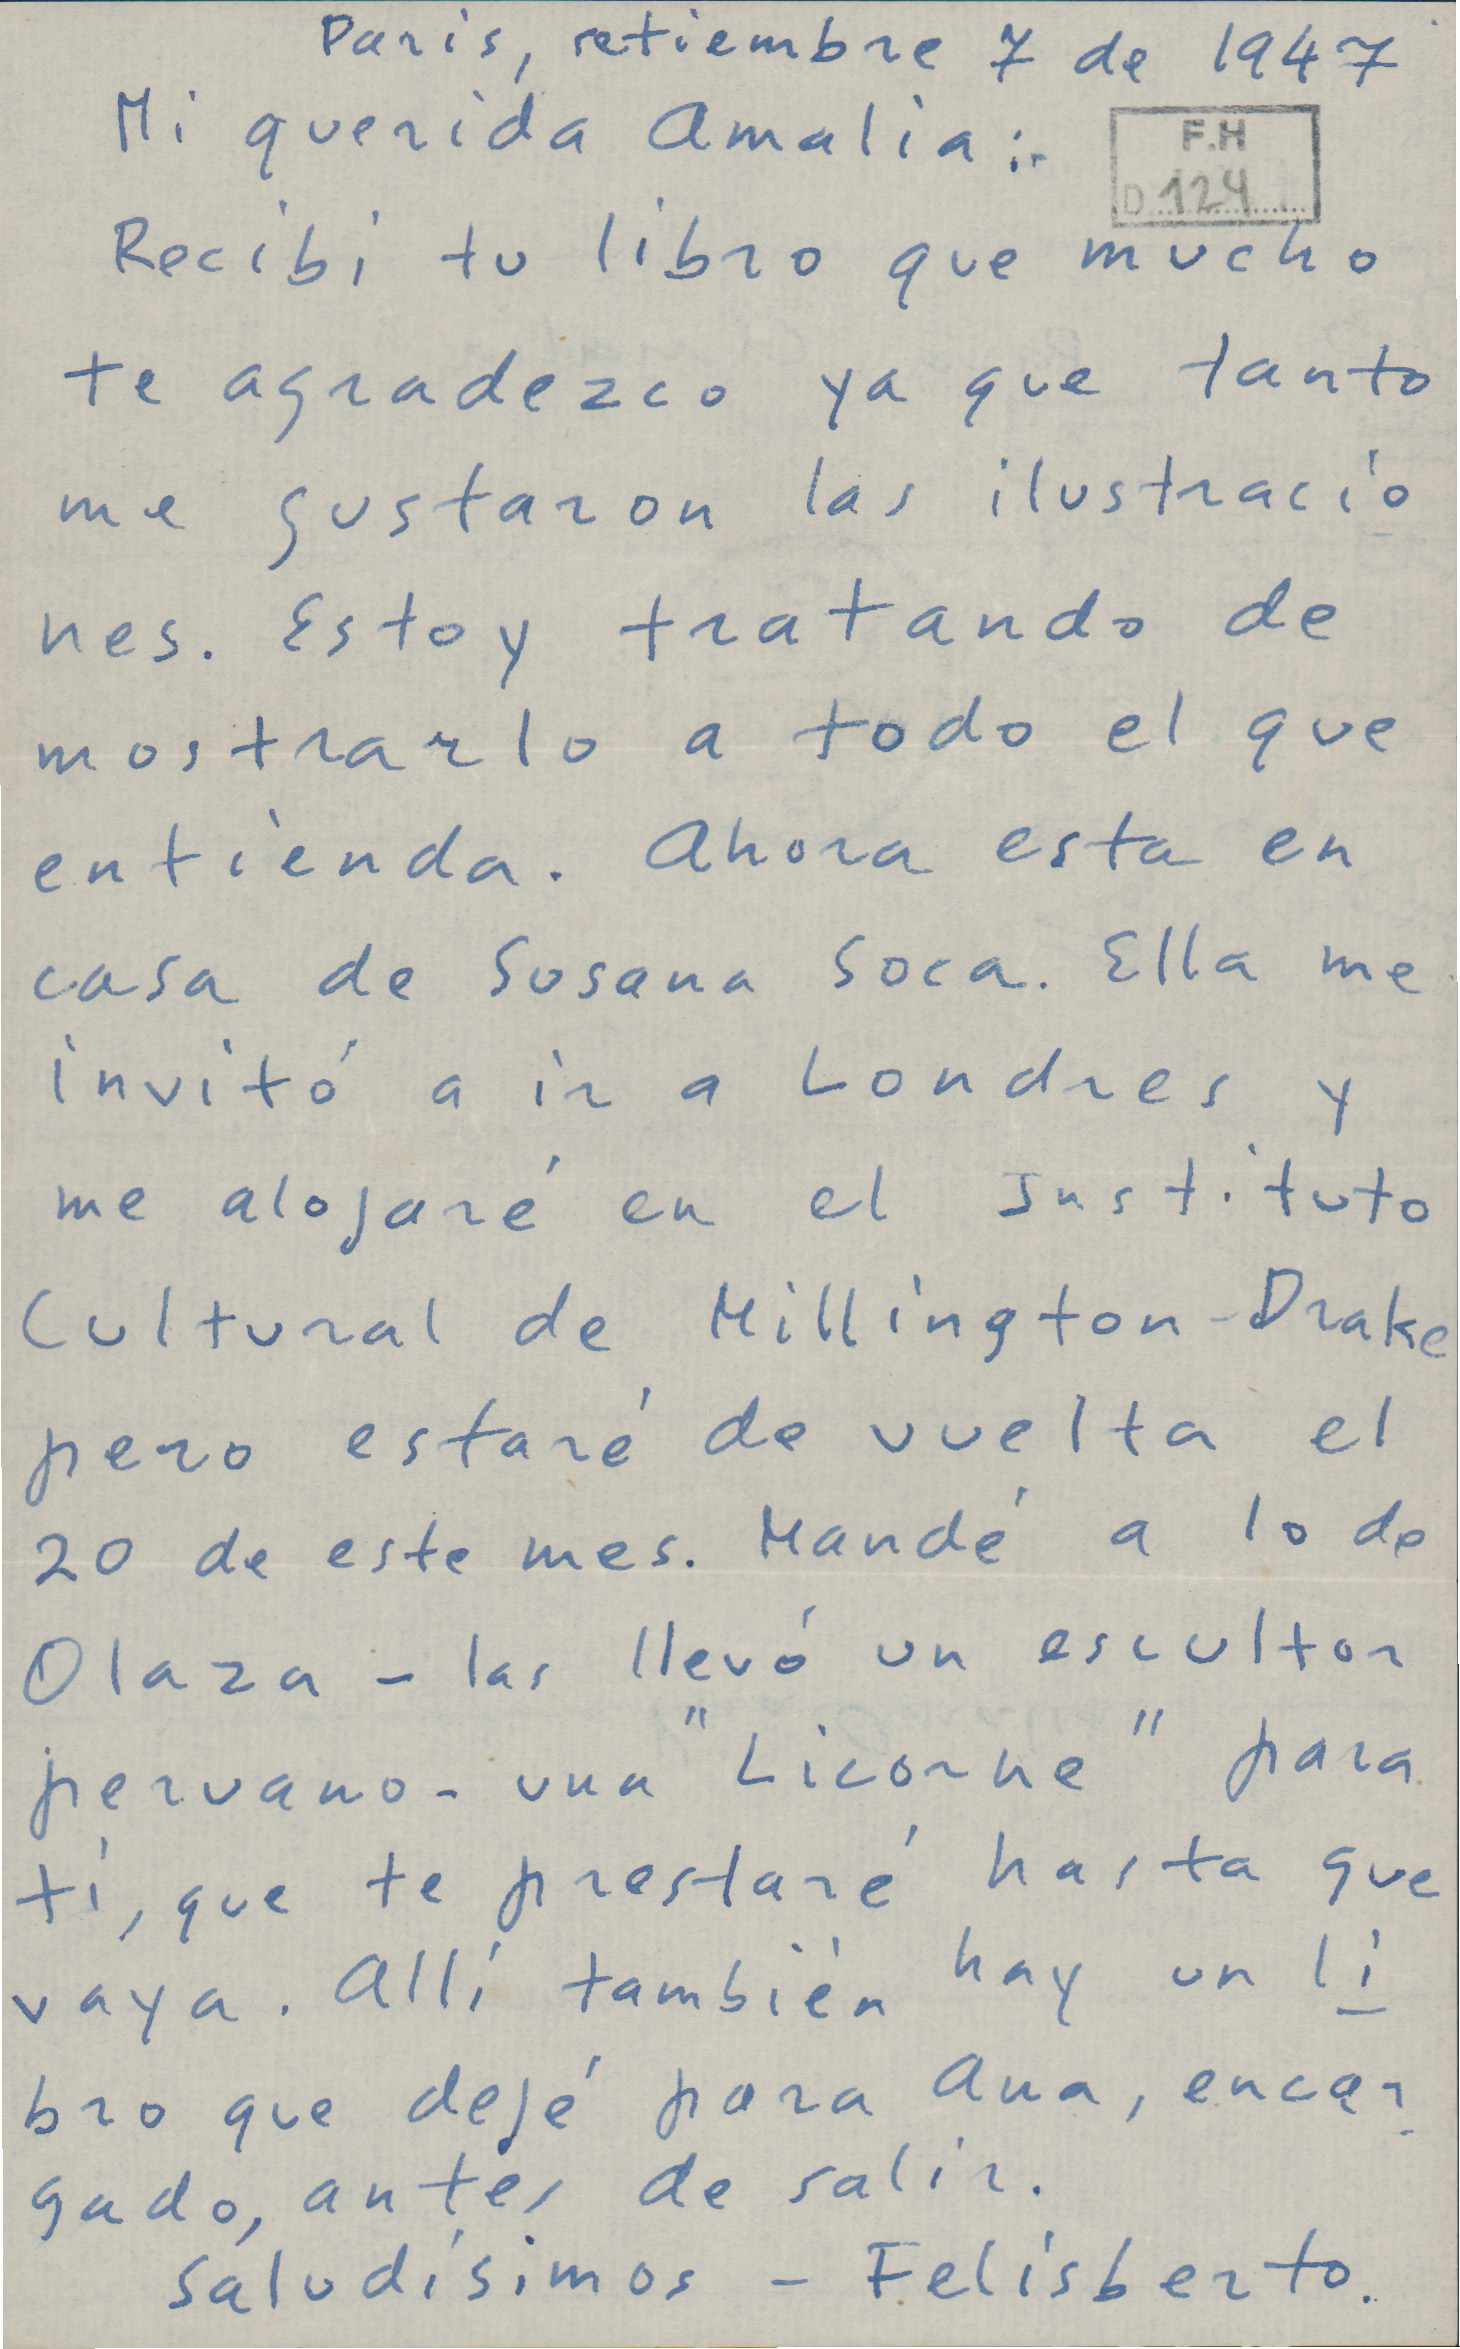 Paris, setiembre 7 de 1947
Mi querida Amalia:-
F.H
D 124
Recibí tu libro que mucho
te agradezco ya que tanto
me gustaron las ilustracio
nes. Estoy tratando de
mostrarlo a todo el que
entienda. Ahora esta en
casa de Susana Soca. Ella me
invitó a ir a Londres y
me alojaré en el Instituto
Cultural de Millington-Drake
pero estaré de vuelta el
20 de este mes. Mandé a lo de
Olaza - las llevó un escultor
peruano - una "Licorne" para
tí, que te prestaré hasta que
vaya. Allí también hay un li
bro que dejé para Ana, encar
gado, antes de salir.
Saludísimos - Felisberto.